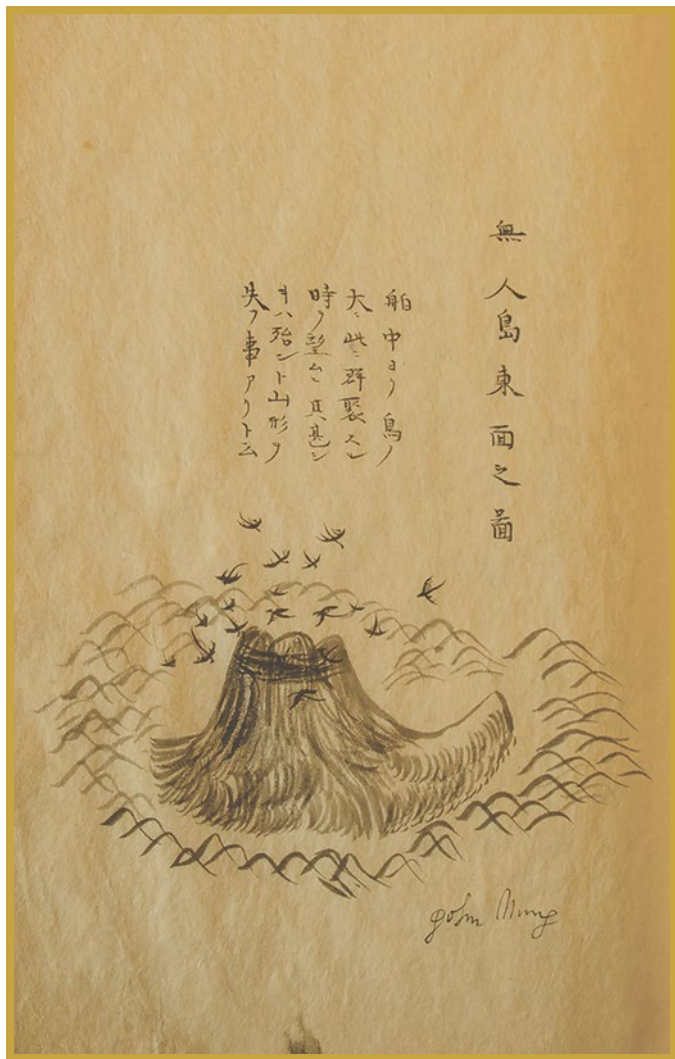 無人島東面之啚
舶中ヨリ鳥ノ
大ニ此ニ群聚スル
時ヲ望ムニ其甚シ
キハ殆ント山形ヲ
失フ事アリト云
John Mung